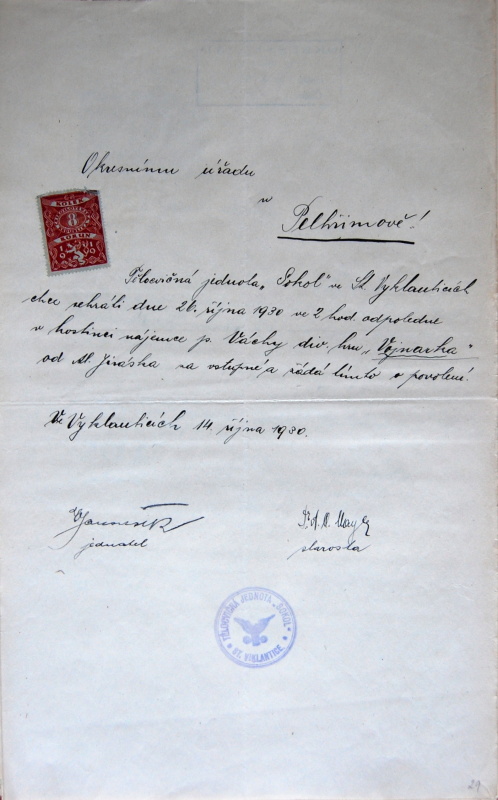 Okresnímu úřadu
v
Pelhřimově!
KOLEK
8
KORUN
Tělocvičná jednota „Sokol" ve St. Vyklanticích
chce sehráti dne 26. října 1930 ve 2 hod. odpoledne
v hostinci nájemce p. Váchy div. hru „Vojnarka"
od Al. Jiráska za vstupné a žádá tímto o povolení.
Ve Vyklanticích 14. října 1930.
jednatel
starosta
TĚLOCVIČNÁ JEDNOTA „SOKOL"
ST. VYKLANTICE.
29